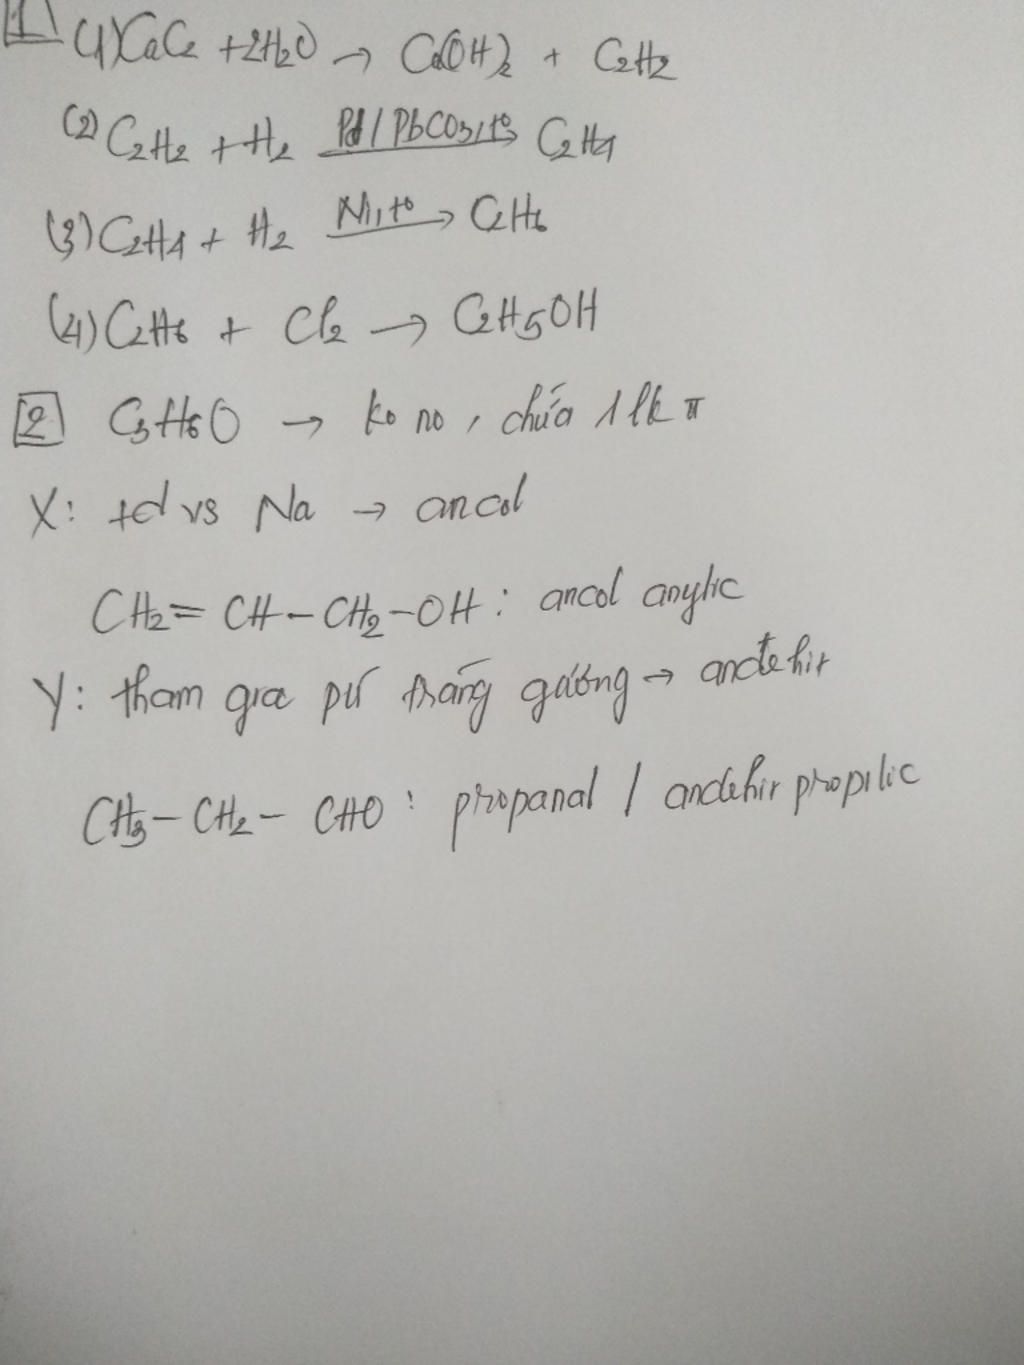 1 (1) CaC2 + 2H2O → Ca(OH)2 + C2H2
(2) C2H2 + H2 Pd/PbCO3, t° → C2H4
(3) C2H4 + H2 Ni, t° → C2H6
(4) C2H6 + Cl2 → C2H5OH
2 C3H6O → ko no, chứa 1 lk π
X: td vs Na → ancol
CH2 = CH – CH2 – OH : ancol anylic
Y: tham gia pứ tráng gương → anđehit
CH3 – CH2 – CHO : propanal / anđehit propilic